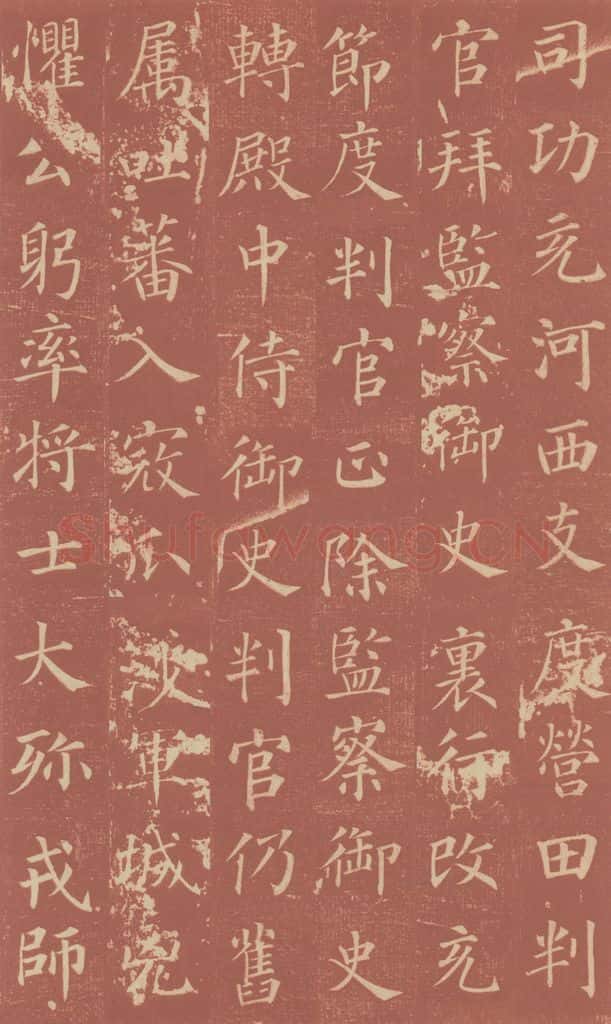 司功充河西支度營田判
官拜監察御史裏行改充
節度判官正除監察御史
轉殿中侍御史判官仍舊
属吐蕃入寇瓜沙軍城兇
懼公躬率将士大殄戎師
Shufawang.CN